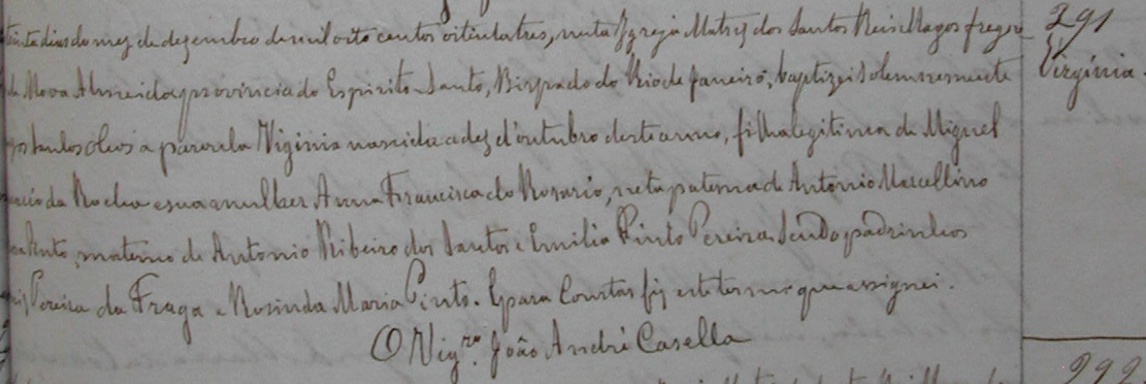 dias do mez de dezembro de mil oito centos oitenta tres, nesta Igreja Matriz dos Santos Reis Magos fregue
291
Virginia.
de Nova Almeida provincia do Espirito-Santo, Bispado do Rio de Janeiro, baptizei solemnemente
santos oleos a parvula Viginia nascida a dez d'outubro deste anno, filha legitima de Miguel
da Rocha e sua mulher Anna Francisca do Rosario, neta paterna de Antonio Marcellino
materno de Antonio Ribeiro dos Santos e Emilia Pinto Pereira. Sendo padrinhos
Pereira da Fraga e Rosinda Maria Pinto. E para constar fiz este termo que assignei.
O Vigro. João André Casella
292